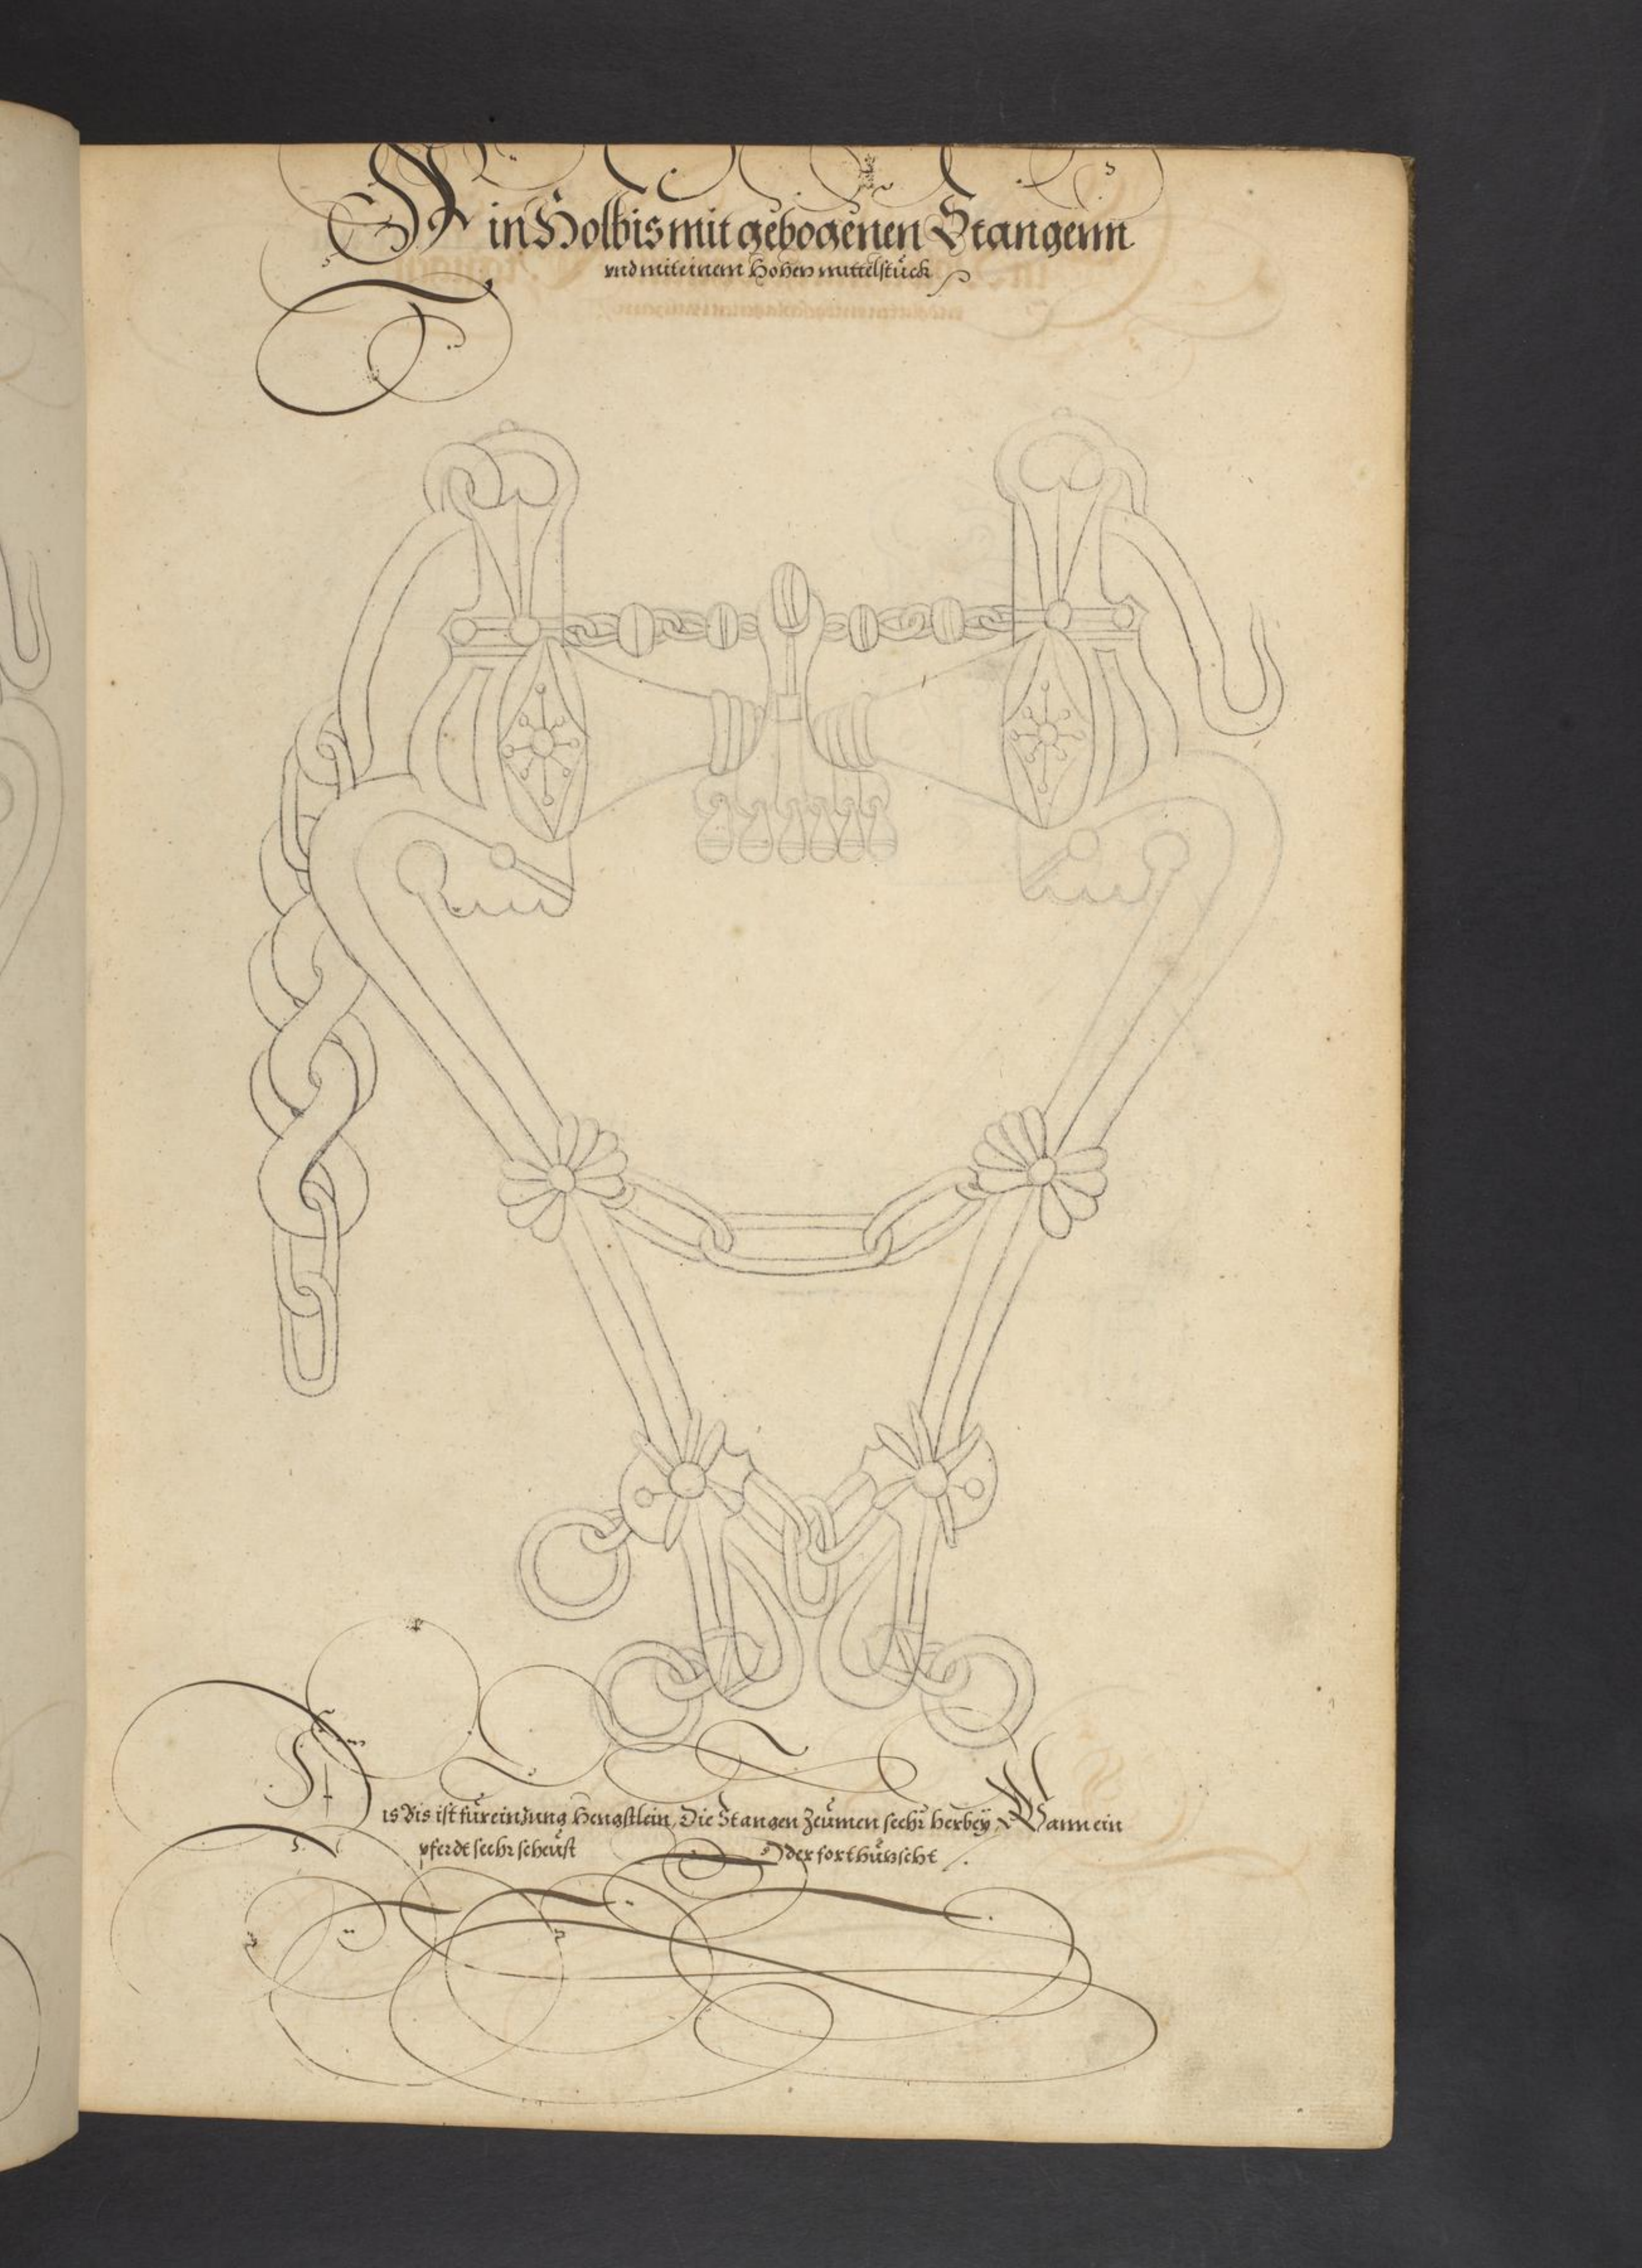 Ein Holbis mit gebogenen Stangenn
vnd mit einem Hohen mittelstück
Dis Bis ist für ein Jung Hengstlein, Die Stangen Zeümen seehr herbey, Wann ein
pferdt seehr scheüst Oder fort